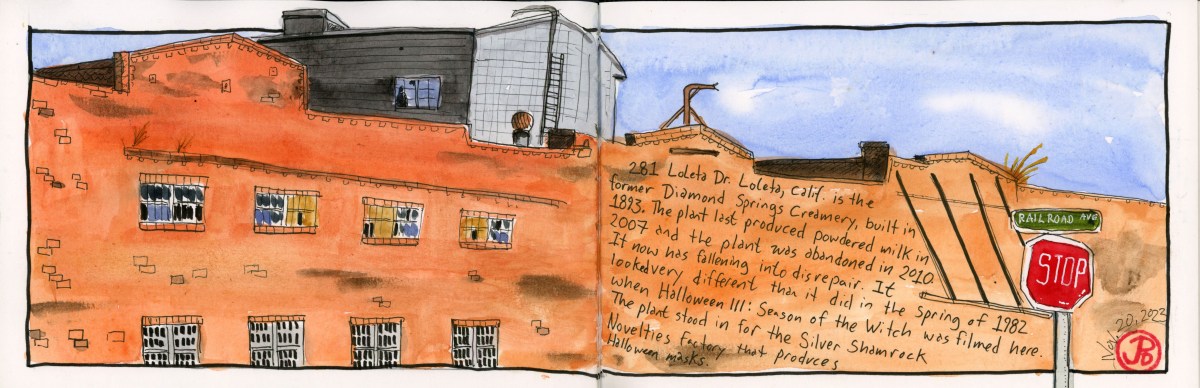 281 Loleta Dr. Loleta, Calif. is the
former Diamond Springs Creamery, built in
1893. The plant last produced powdered milk in
2007 and the plant was abandoned in 2010.
It now has fallening into disrepair. It
looked very different than it did in the Spring of 1982
when Halloween III: Season of the Witch was filmed here.
The plant stood in for the Silver Shamrock
Novelties factory that produces
Halloween masks.
RAILROAD AVE
STOP
Nov. 20, 2023
JPD